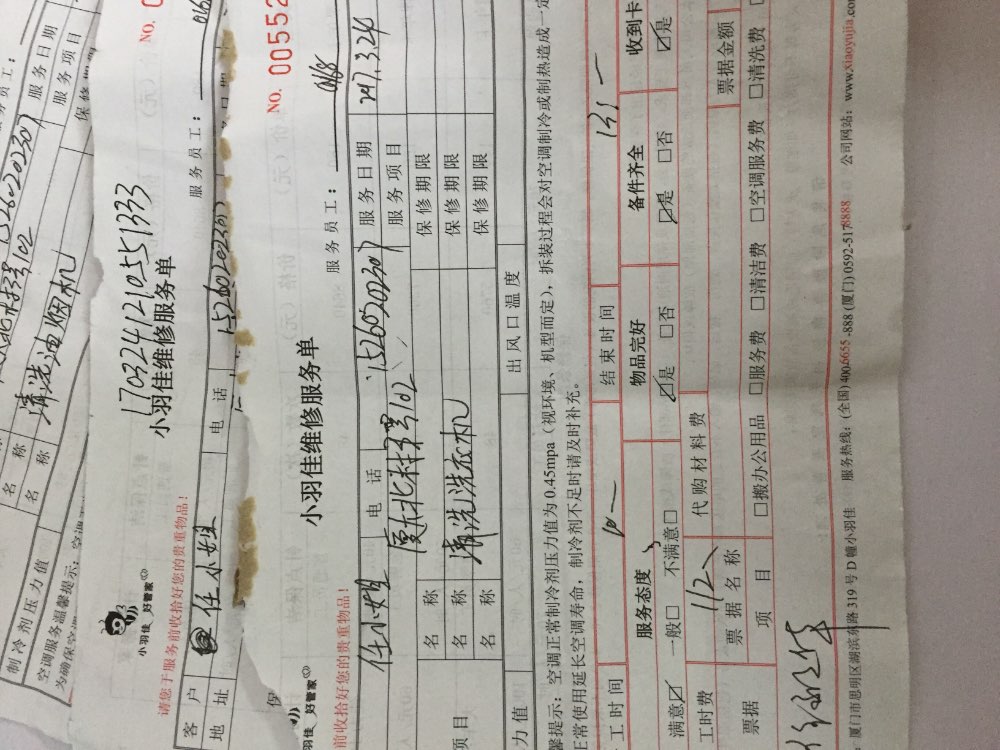 服务员工：
制冷剂压力值
名称
名称 清洗油烟机
服务日期
服务项目
保修期限
空调服务温馨提示：空调
为确保空
NO.
1703241210551333
小羽佳维修服务单
小羽佳 好管家
服务员工：
请您于服务前收拾好您的贵重物品！
客户 任小姐 电话 15260202307
地址
NO. 00552
小羽佳维修服务单
羽佳 好管家
服务员工： 018
前收拾好您的贵重物品！
任小姐 电话 15260202307 服务日期 2017.3.24
厦大北村3号102 服务项目
名称 保修期限
项目 名称 清洗洗衣机 保修期限
名称 保修期限
力值 出风口温度
馨提示：空调正常制冷剂压力值为0.45mpa（视环境、机型而定），拆装过程会对空调制冷或制热造成一定
正常使用延长空调寿命，制冷剂不足时请及时补充。
工时间 结束时间
服务态度 物品完好 备件齐全 收到卡
满意☑ 一般□ 不满意□ ☑是 □否 ☑是 □否 ☑是
工时费 112 代购材料费
票据 票据名称 票据金额
项目 □搬办公用品 □服务费 □清洁费 □空调服务费 □清洗费
：厦门市思明区湖滨东路319号D幢小羽佳 服务热线：(全国)400-6655-888 (厦门) 0592-5178888 公司网站：www.xiaoyujia.com